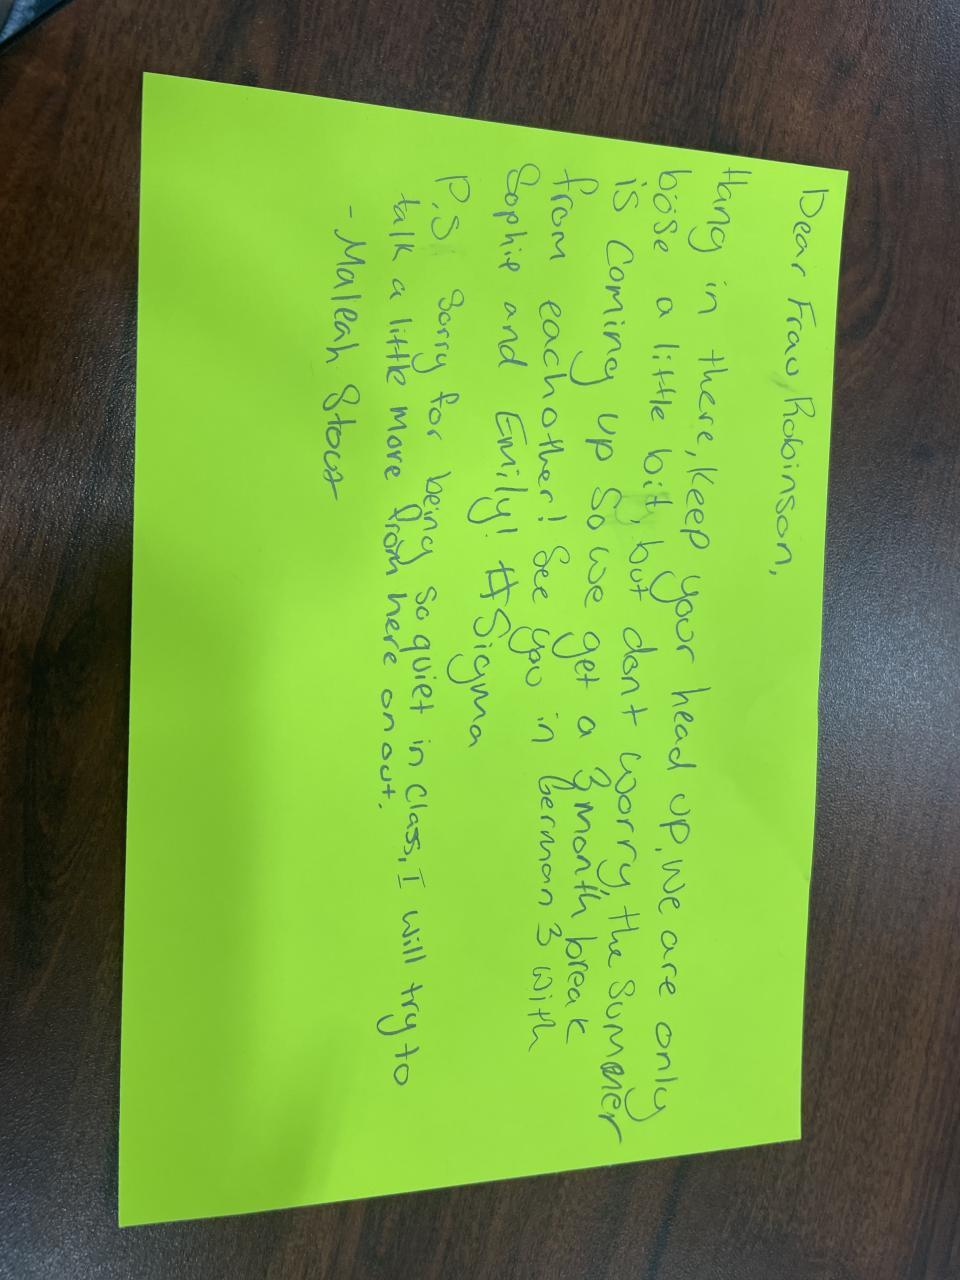 Dear Frau Robinson,
Hang in there, Keep your head up. We are only
böse a little bit, but dont worry, the Summer
is Coming up So we get a 3 month break
from eachother! See you in German 3 with
Sophie and Emily! #Sigma
P.S Sorry for being so quiet in class, I will try to
talk a little more from here on out.
- Maleah